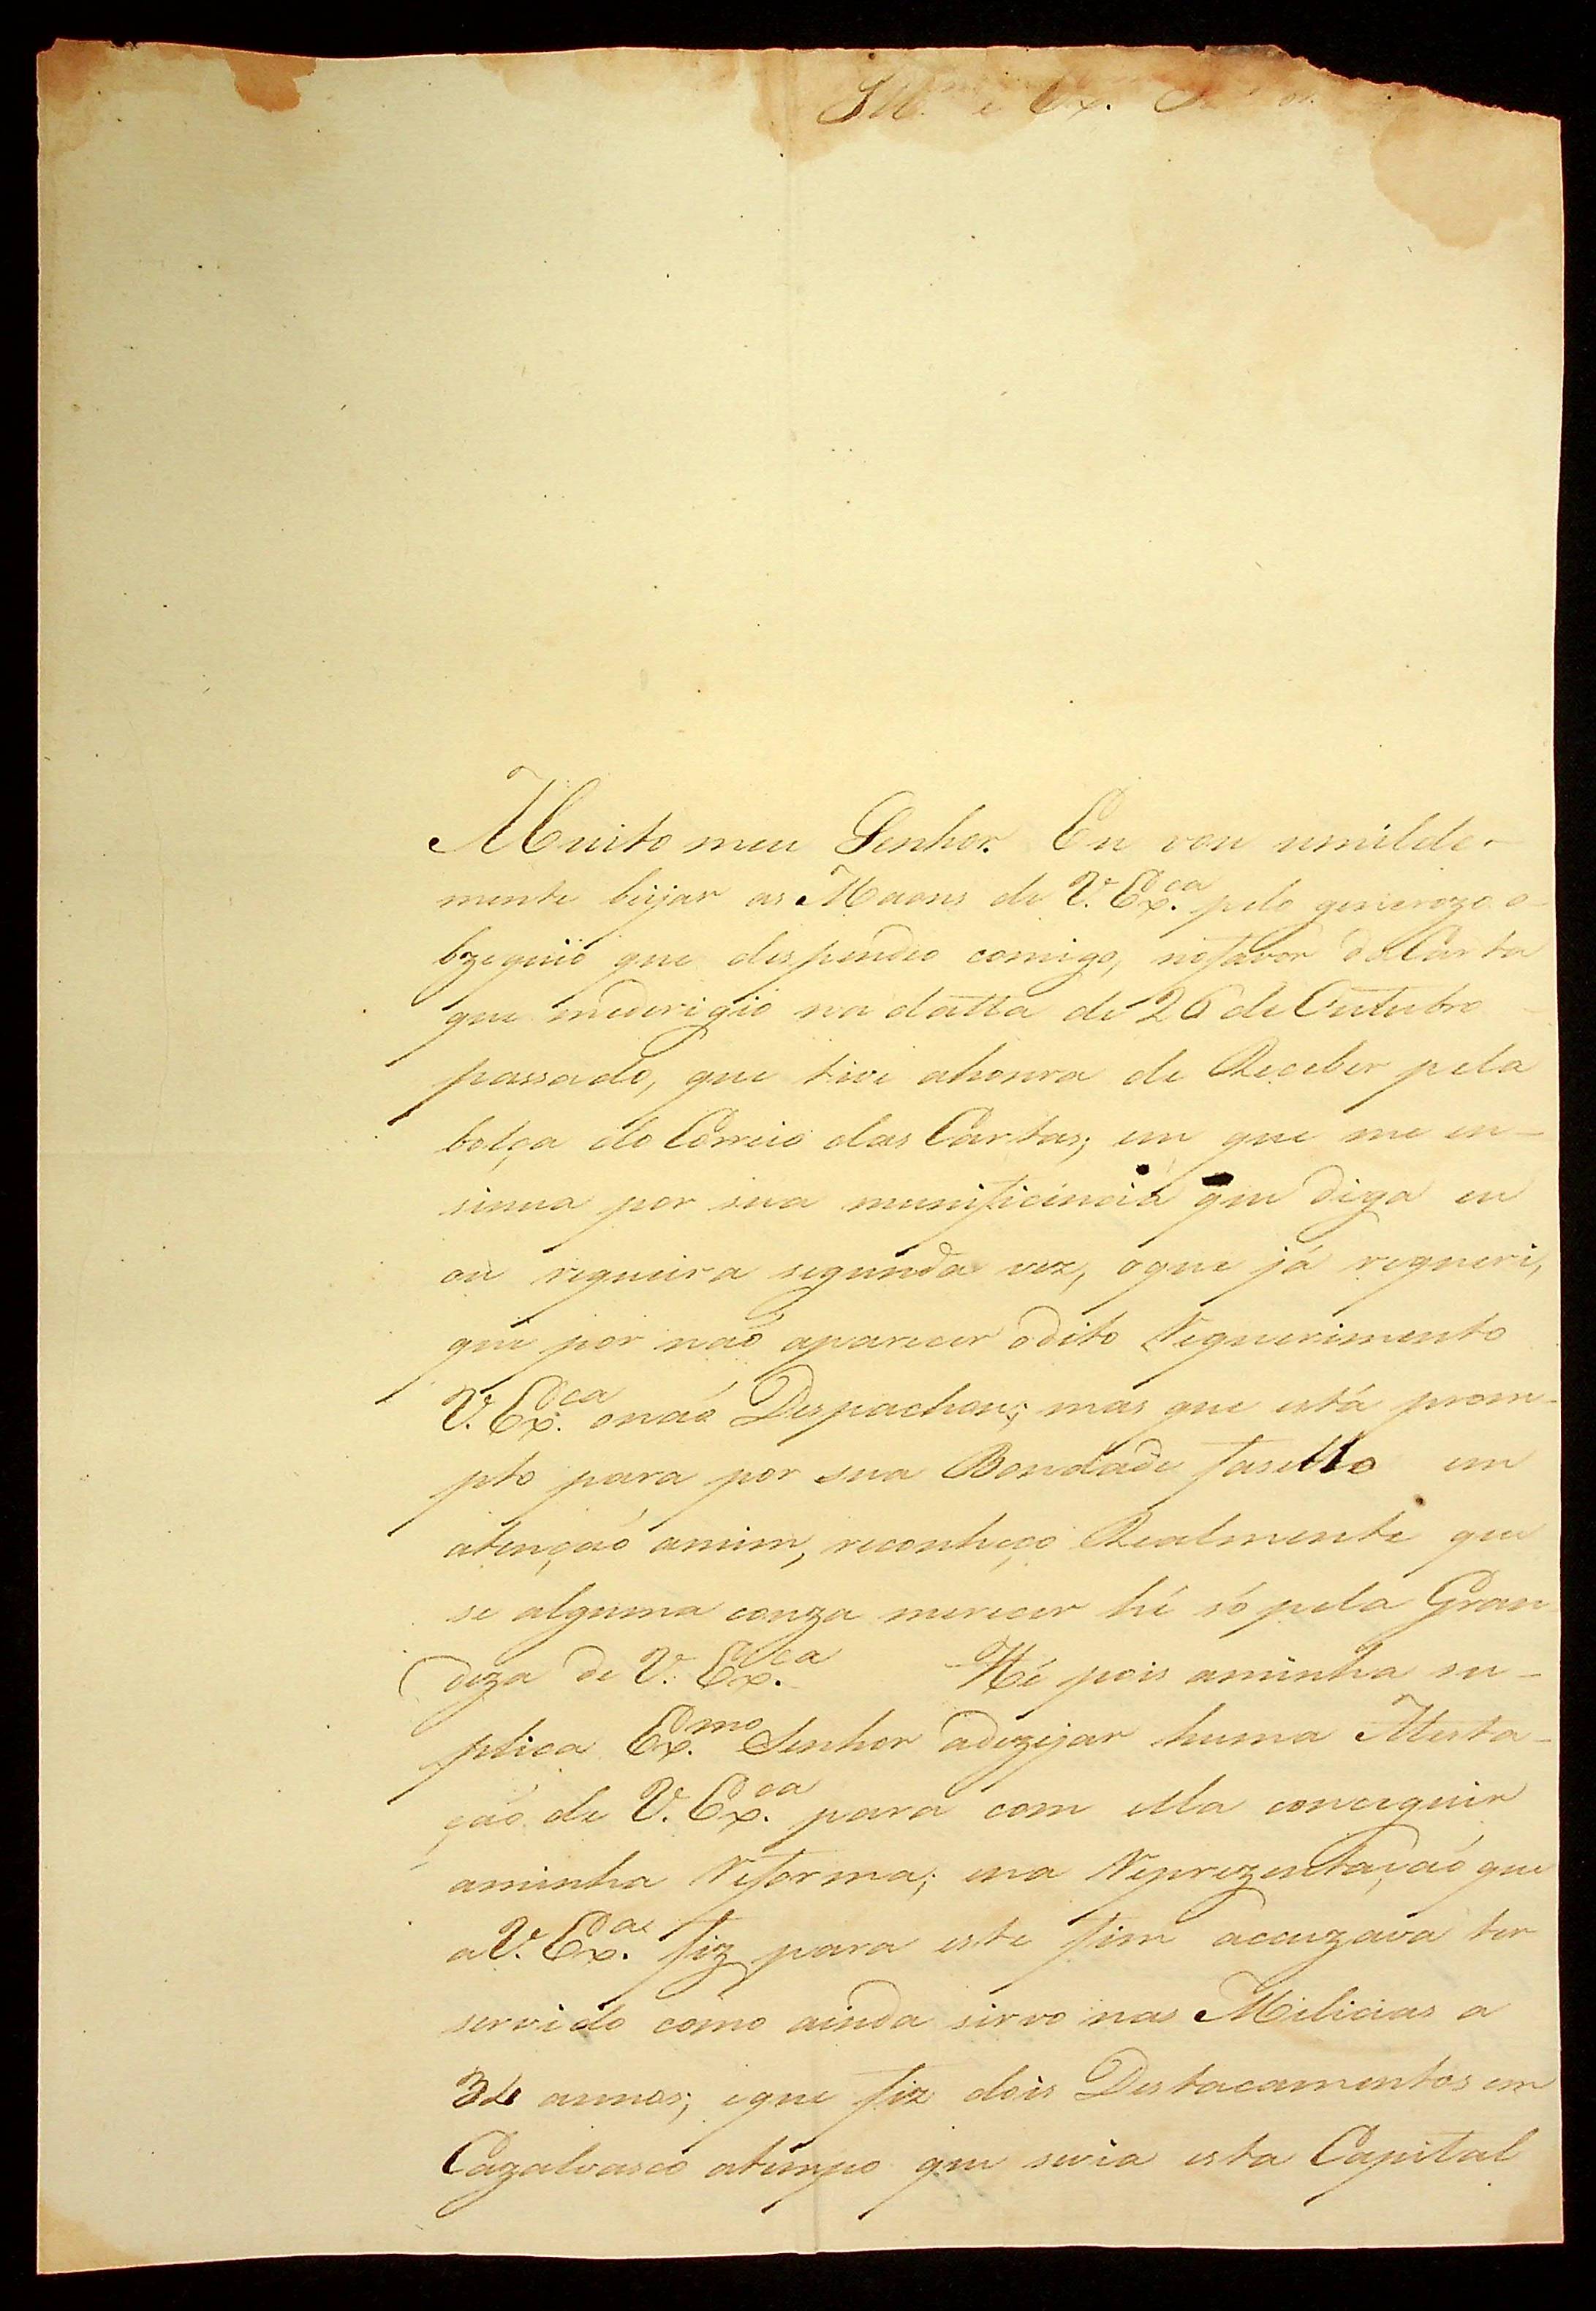 Ill. e Ex.
Muito meu Senhor. Eu vou umilde-
mente beijar as Maons de V. Ex.ca pelo generozo o-
bzequio que despendeo comigo, nofavor da Carta
que mederigio na datta de 26 de Outubro
passado, que tive ahonra de Receber pela
bolça do Correio das Cartas; em que me en-
sinua por sua munificincia que diga eu
ou requeira segunda vez, oque já requeri,
que por naó aparecer odito Requerimento
V. Ex.ca onaó Despachou; mas que está prom-
pto para por sua Bondade fasello em
atençaó amim, reconheço Realmente que
se alguma couza merecer hé só pela Gran
deza de V. Ex.ca Hé pois aminha su-
plica Ex.mo Senhor adezejar huma Atesta-
çaó de V. Ex.ca para com ella conceguir
aminha Reforma; ena Reprezentaçaó que
a V. Ex.ca fiz para este fim accuzava ter
servido como ainda sirvo nas Milicias a
34 annos; eque fiz dois Destacamentos em
Cazalvasco atempo que seria esta Capital